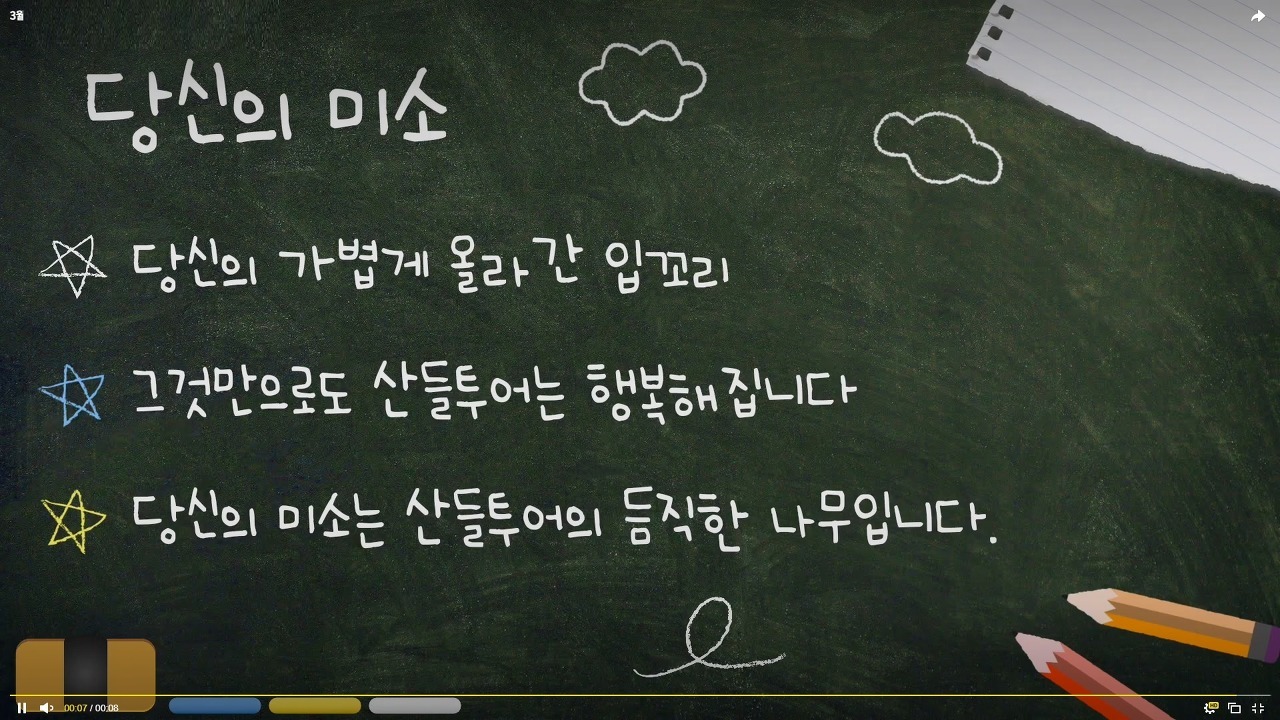 3월
당신의 미소
당신의 가볍게 올라간 입꼬리
그것만으로도 산들투어는 행복해집니다
당신의 미소는 산들투어의 듬직한 나무입니다.
00:07 / 00:08
HD